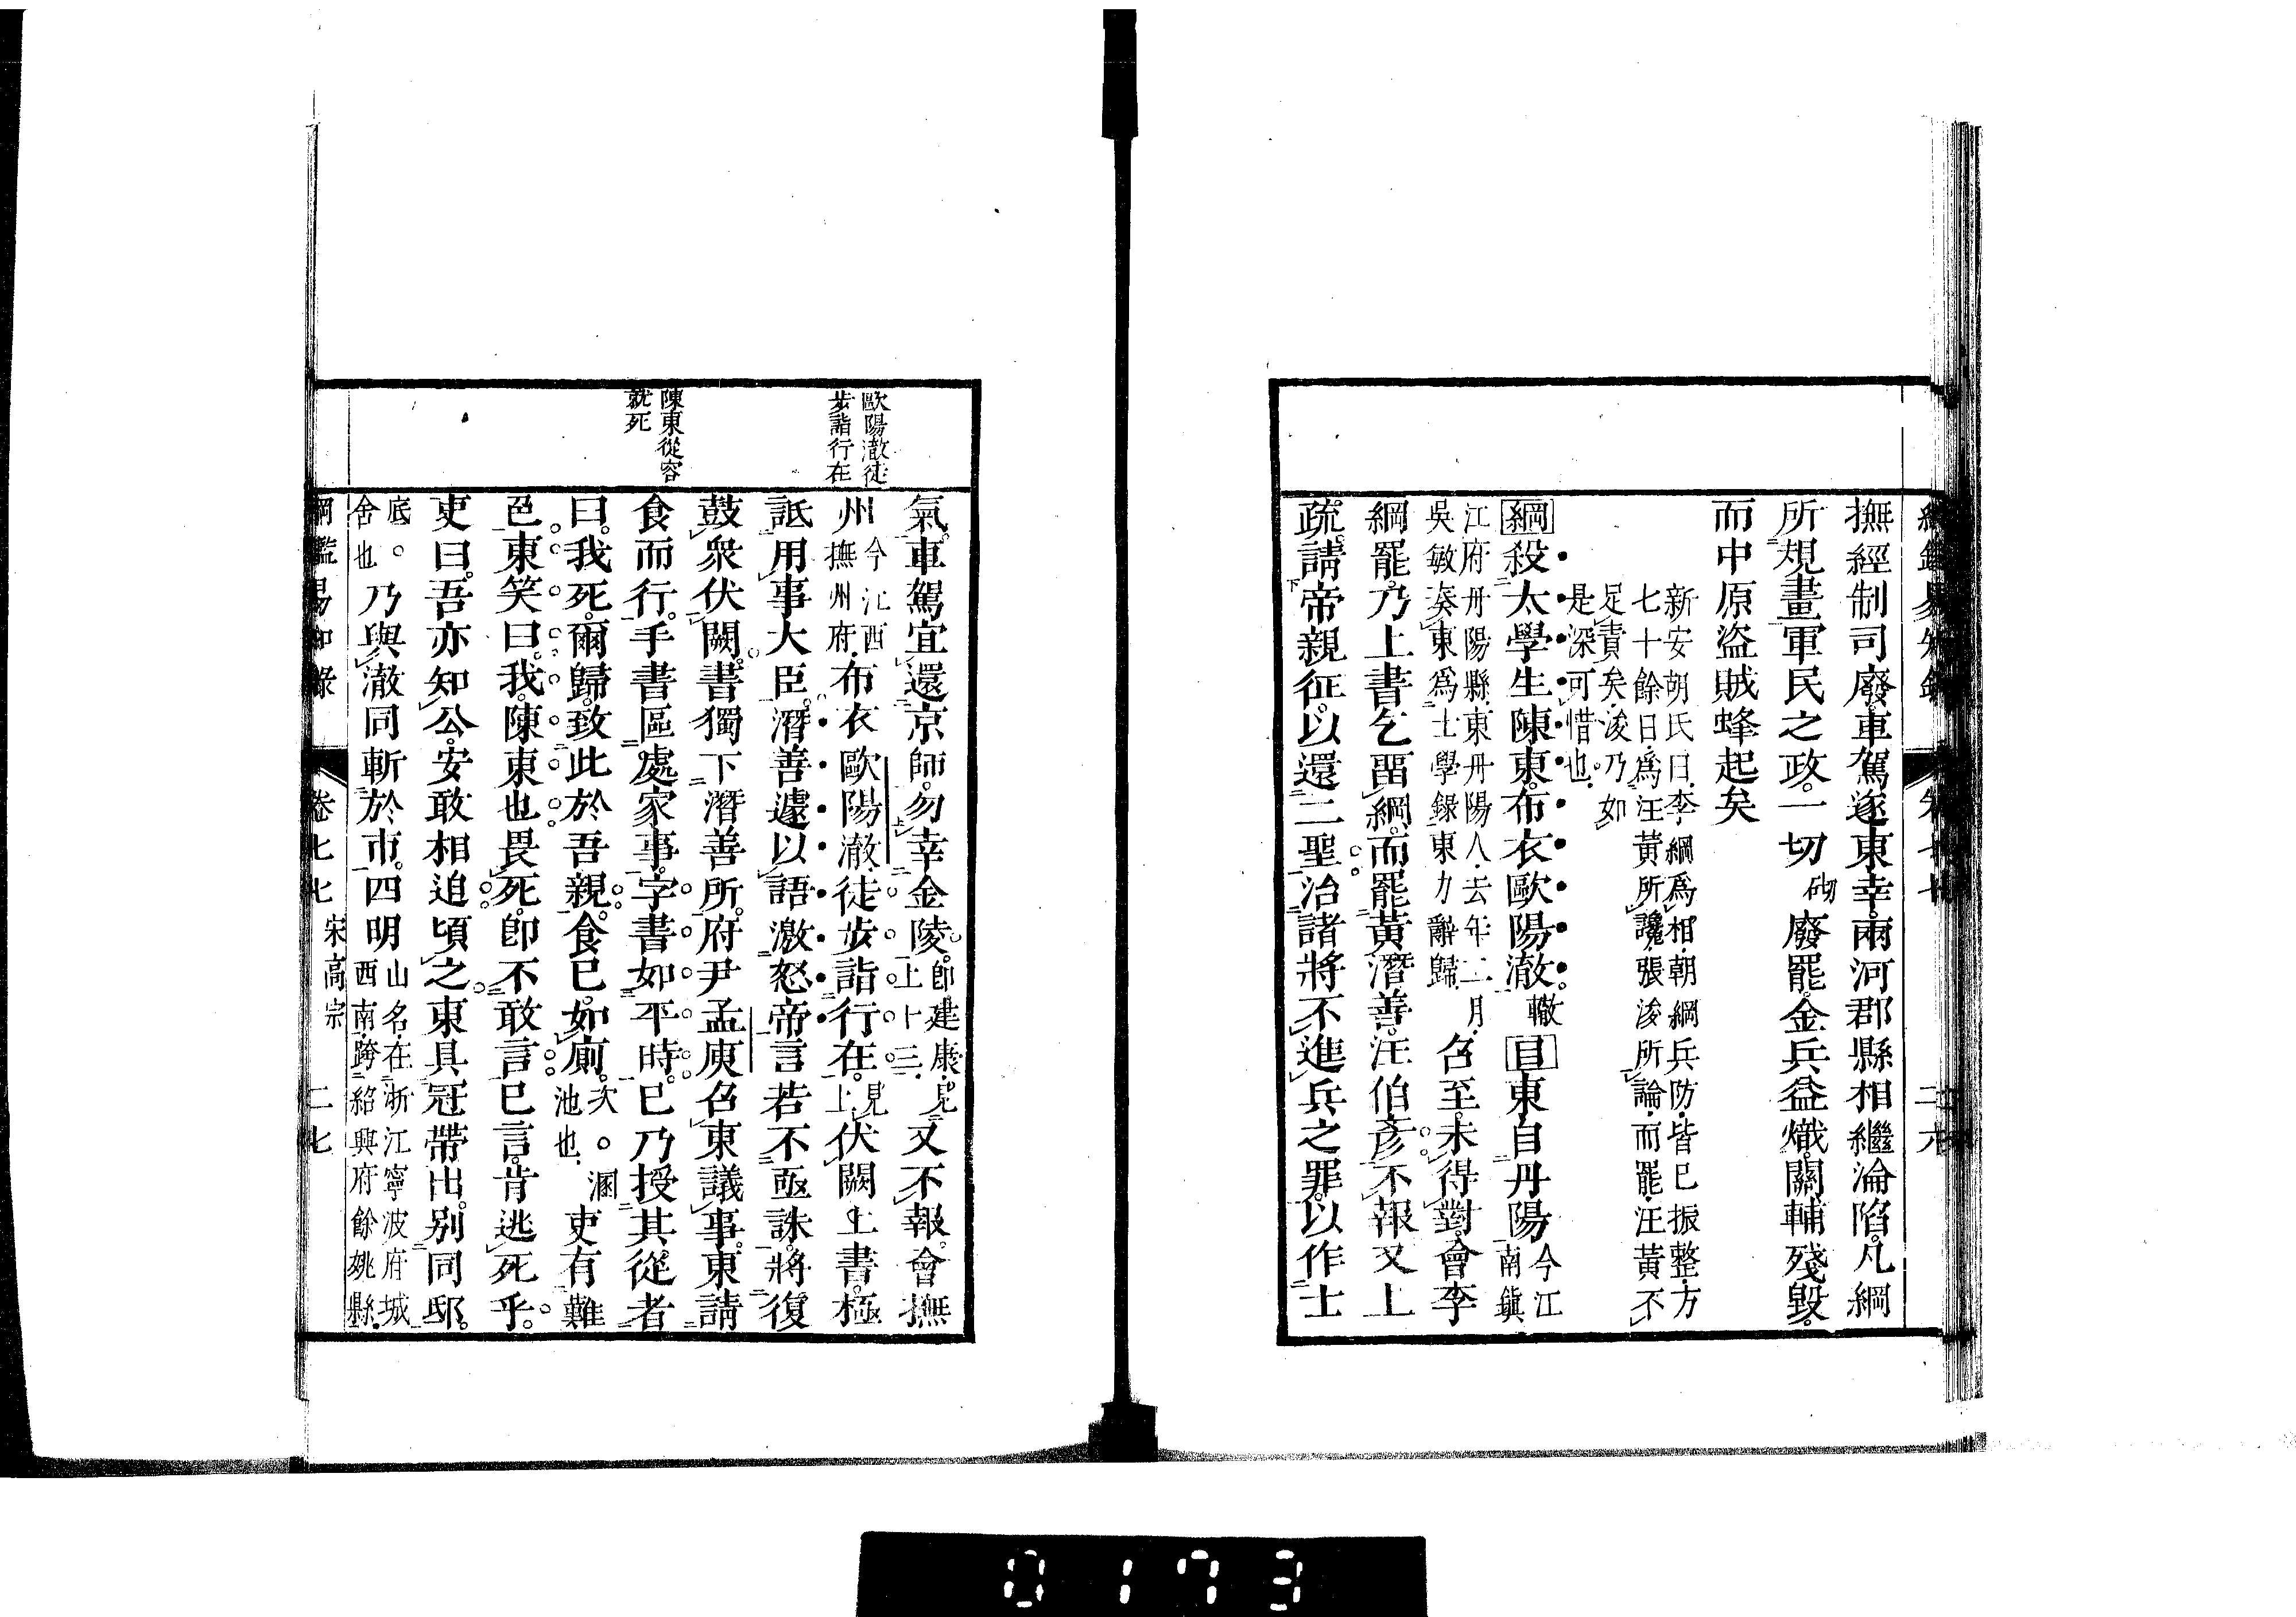 撫經制司廢車駕遂東幸兩河郡縣相繼淪陷凡綱
所規畫軍民之政一切砌廢罷金兵益熾關輔殘毀
而中原盜賊蜂起矣
新安胡氏曰李綱爲相朝綱兵防皆已振整方
七十餘日爲汪黃所讒張浚所論而罷汪黃不
足責矣浚乃如
是深可惜也
綱殺太學生陳東布衣歐陽澈轍目東自丹陽今江南鎭
江府丹陽縣東丹陽人去年二月
吳敏奏東爲士學錄東力辭歸
召至未得對會李
綱罷乃上書乞畱綱而罷黃潛善汪伯彥不報又上
疏請帝親征以還二聖治諸將不進兵之罪以作士
歐陽澈徒
步詣行在
陳東從容
就死
氣車駕宜還京師勿幸金陵卽建康見上十三又不報會撫
州今江西撫州府布衣歐陽澈徒步詣行在見上伏闕上書極
詆用事大臣潛善遽以語激怒帝言若不亟誅將復
鼓衆伏闕書獨下潛善所府尹孟庾召東議事東請
食而行手書區處家事字書如平時已乃授其從者
曰我死爾歸致此於吾親食已如廁次。溷池也吏有難
色東笑曰我陳東也畏死卽不敢言已言肯逃死乎
吏曰吾亦知公安敢相迫頃之東具冠帶出别同邸
底。舍也乃與澈同斬於市四明山名在浙江寧波府城
西南跨紹興府餘姚縣
綱鑑易知錄 卷七七 宋高宗 二七